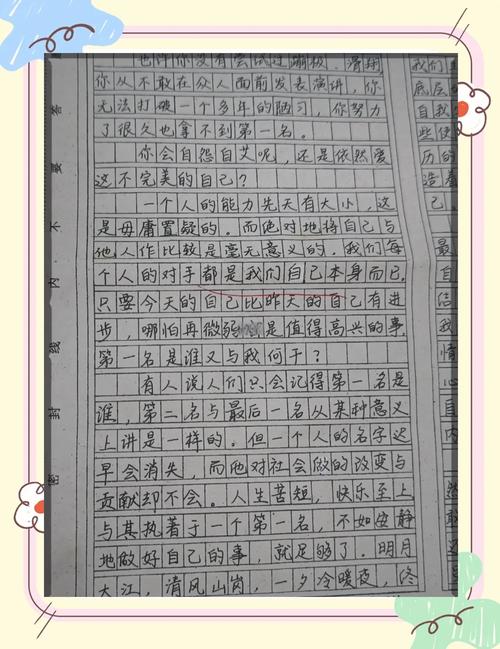 也许你没有尝试过蹦极、滑翔，
你从不敢在众人面前发表演讲，你
无法打破一个多年的陋习，你努力
了很久也拿不到第一名。
你会自怨自艾呢，还是依然爱
这不完美的自己？
一个人的能力先天有大小，这
是毋庸置疑的。而绝对地将自己与
他人作比较是毫无意义的。我们每
个人的对手都是我们自己本身而已，
只要今天的自己比昨天的自己有进
步，哪怕再微弱是值得高兴的事，
第一名是谁又与我何干？
有人说人们只会记得第一名是
谁，第二名与最后一名从某种意义
上讲是一样的。但一个人的名字迟
早会消失，而他对社会做的改变与
贡献却不会。人生苦短，快乐至上
与其执着于一个第一名，不如安静
地做好自己的事，就足够了。明月
大江，清风山岗，一夕冷暖夜，佟
答要不内线封密
我们
底层
自我
些使
历的
造着
己。
最
自
信
我
情
心
自
内
然
敢
还